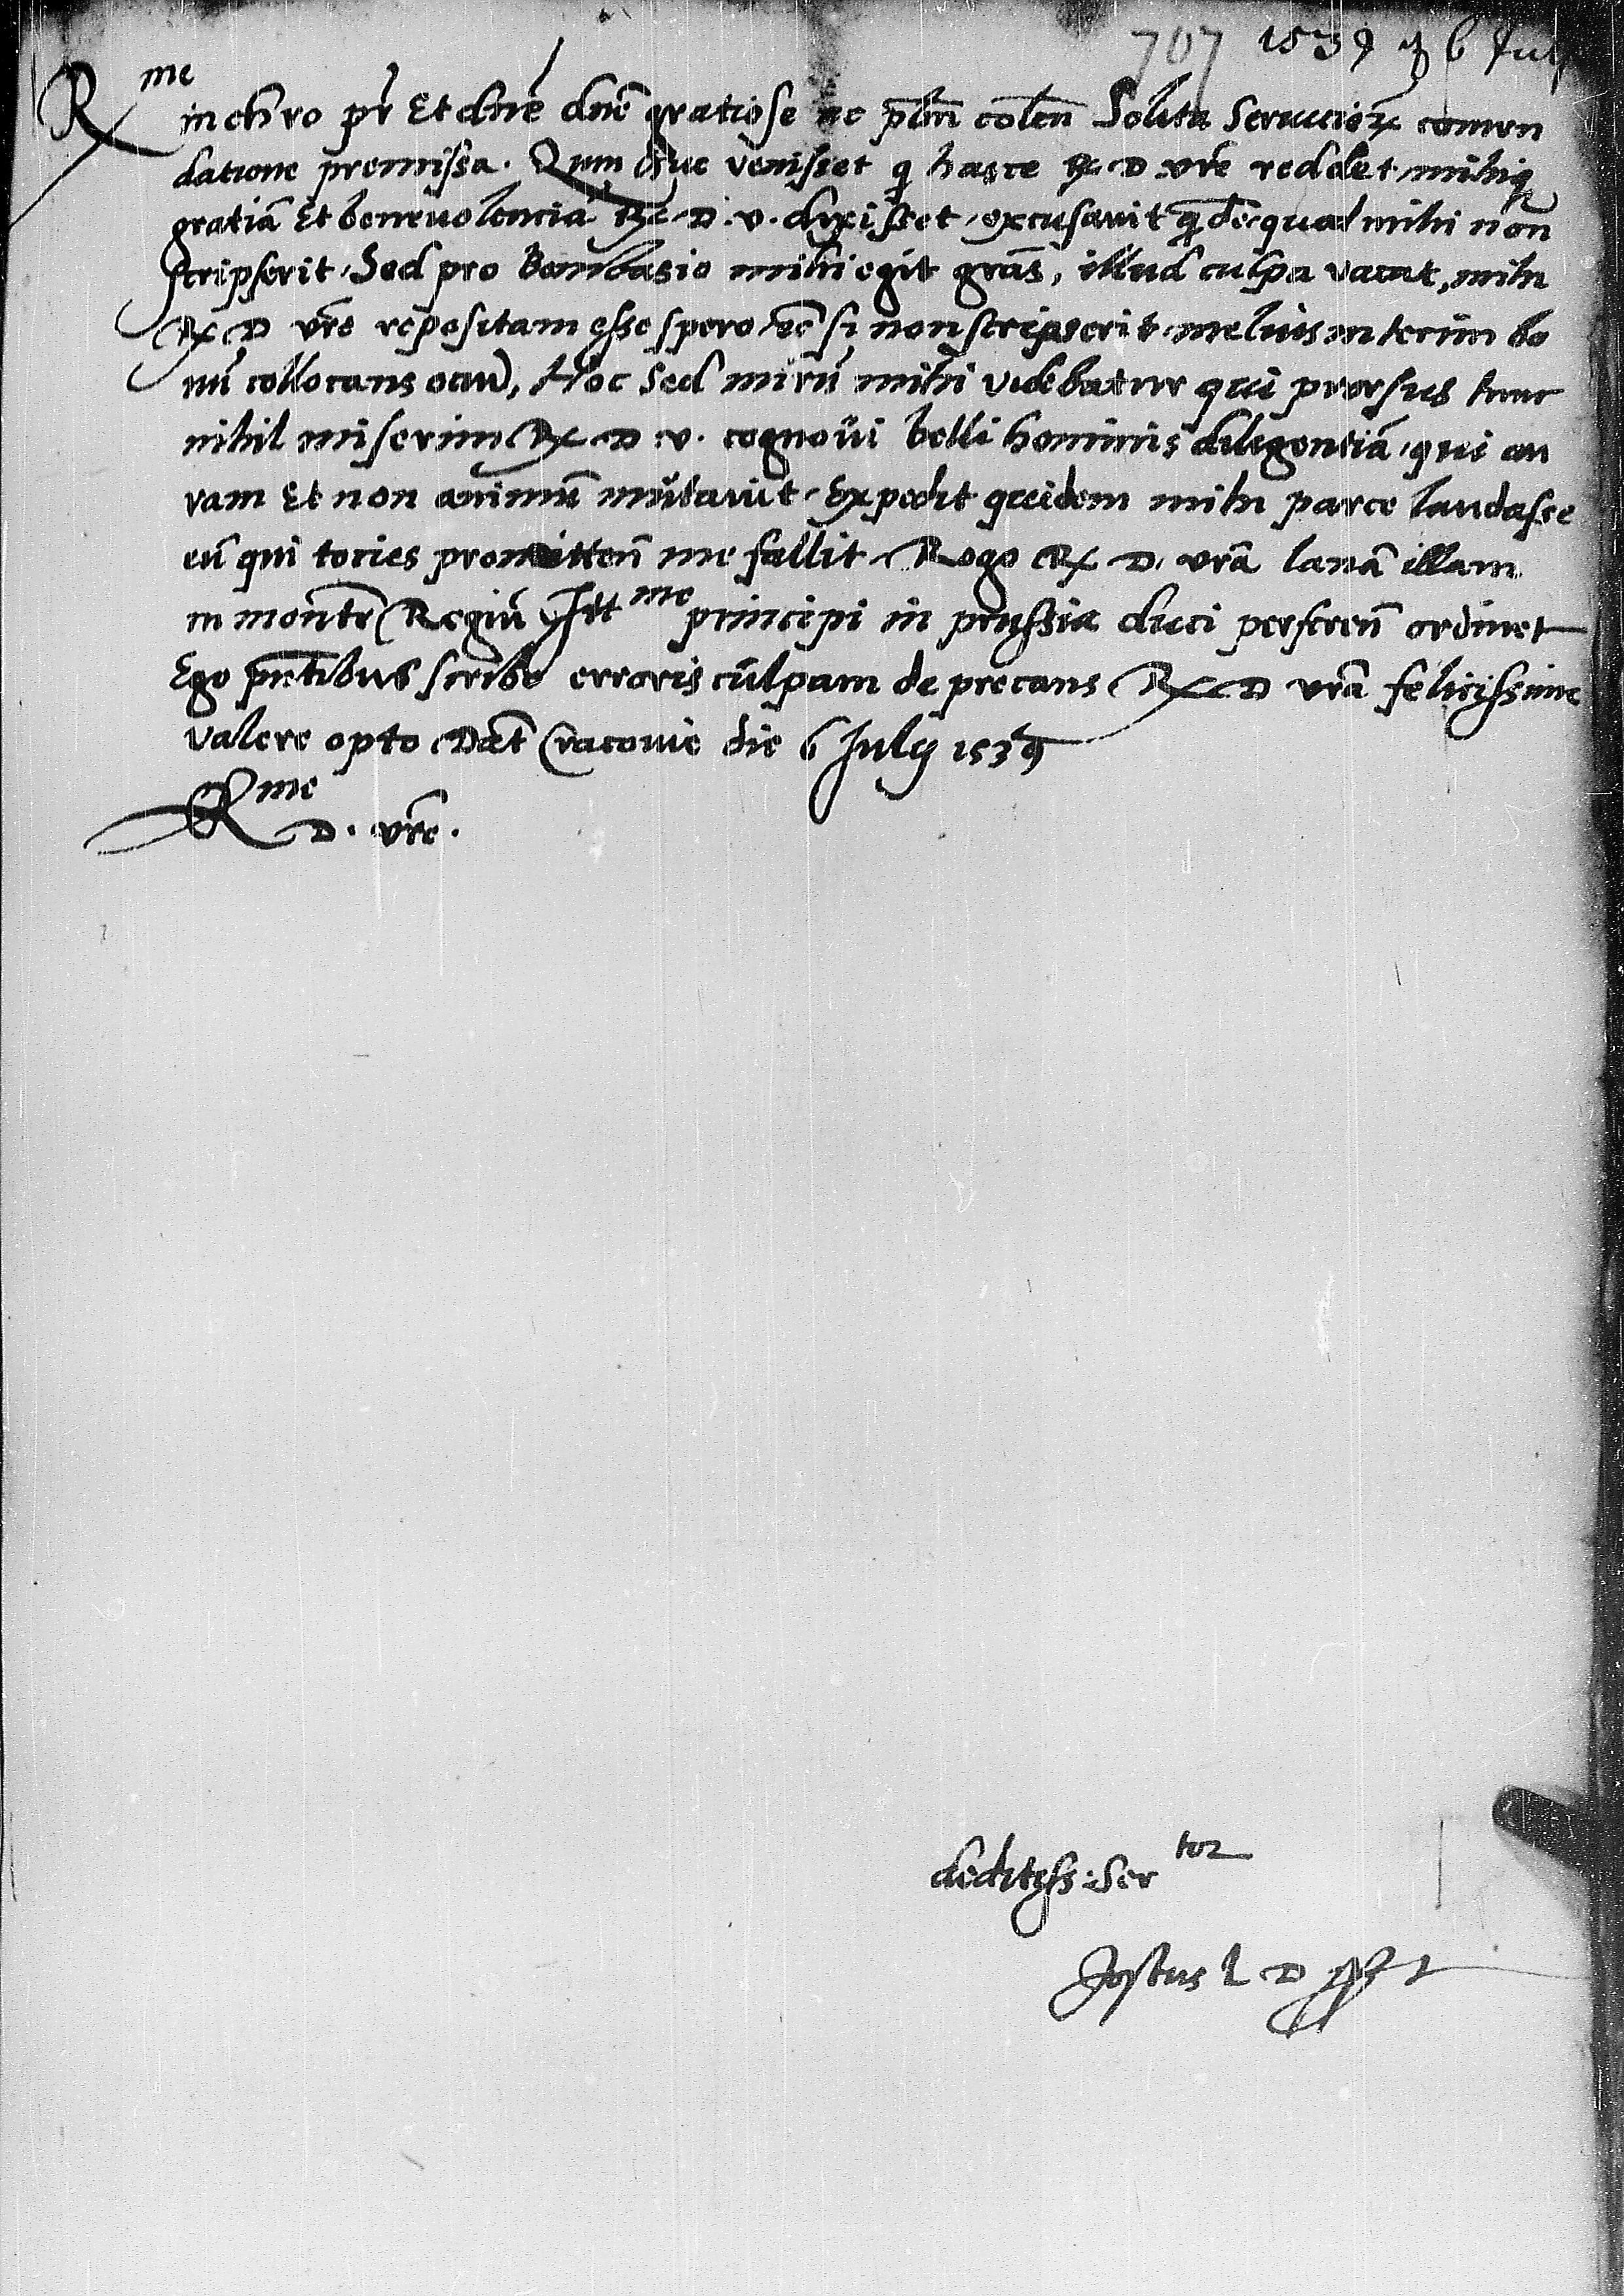 707 1539 6 Jul
Rme
in chro pr Et dne dne gratiose ac plm colen Solita Seruicior comen
datione premissa. Qum huc venisset q hasce R D vre reddet mihiq
gratia Et beneuolencia R. D. v. dixisset excusauit q de qua mihi non
scripserit. Sed pro Bombasio mihi egit gras, illud culpa vacat, mihi
R D vre repositam esse spero ec si non scripserit melius interim bo
nu collocans ociu, Hoc Sed miru mihi videbatur qui prorsus tunc
nihil miserim R D v. cognoui belli hominis diligentia qui au
ram Et non animu mutauit. Expedit quidem mihi parce laudasse
eu qui tocies promitten me fallit. Rogo R D. vra lana illam
in monte Regiu Illme principi in prussia duci perferen ordinet
Ego pntibus scribo erroris culpam de precans R D vra felicissime
valere opto Dat Cracouie die 6 July 1539
Rme
D. vre.
deditiss: Sertor
Jostus L D